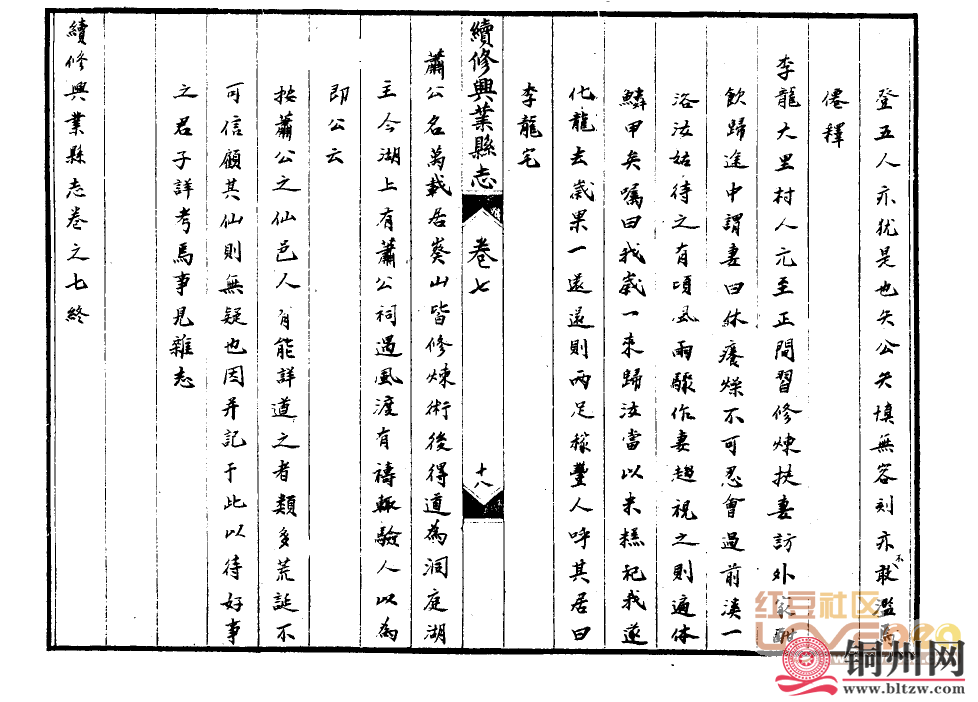 登五人亦犹是也矢公矢慎無容刻亦不敢濫焉
僊釋
李龍大里村人元至正間習修煉扶妻訪外家酣
飲歸途中謂妻曰体癢燥不可忍會過前溪一
浴汝姑待之有頃風雨驟作妻趨視之則遍体
鱗甲矣囑曰我歲一来歸汝當以米糕祀我遂
化龍去歲果一還還則雨足稼豐人呼其居曰
李龍宅
續修興業縣志
卷七
十八
蕭公名萬載居葵山皆修煉術後得道為洞庭湖
主今湖上有蕭公祠遇風渡有禱輒驗人以為
即公云
按蕭公之仙邑人有能詳道之者類多荒誕不
可信顧其仙則無疑也因并記于此以待好事
之君子詳考焉事見雜志
續修興業縣志卷之七終
红豆社区
铜州网
www.bltzw.com